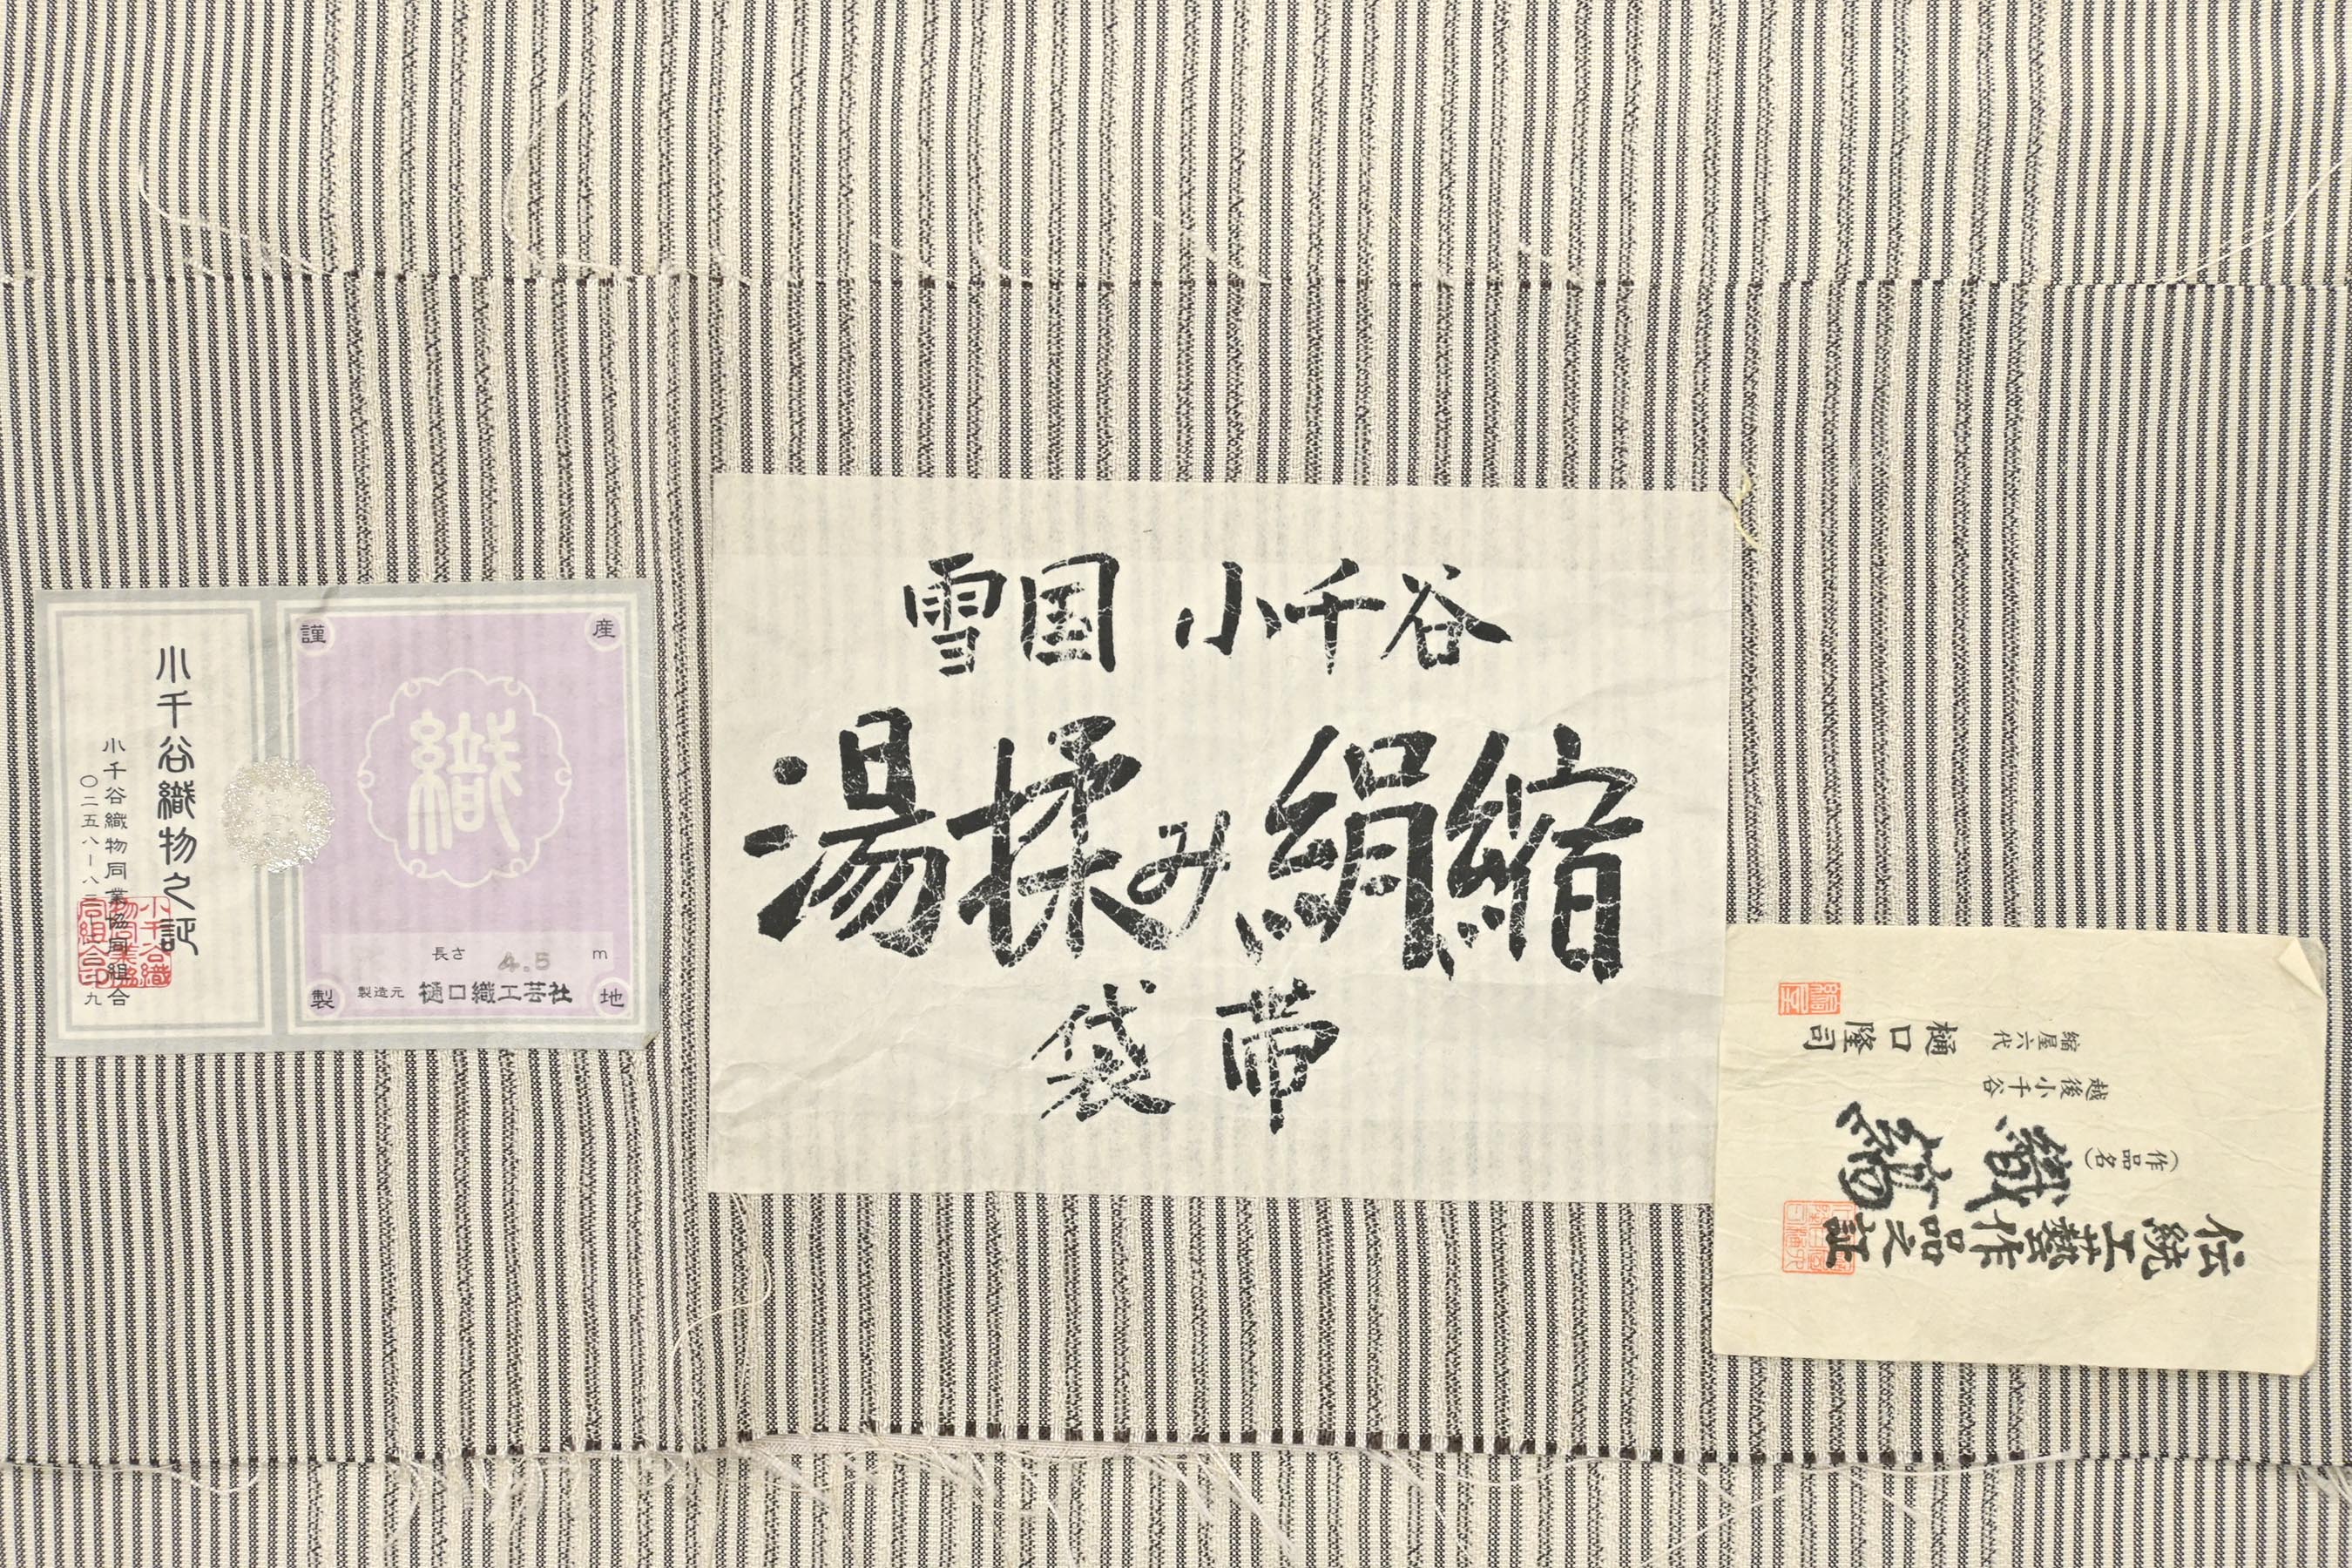 小千谷織物之証
小千谷織物同業協同組合
〇二五八ー八
小千谷織物同業協同組合印
謹 産
織
長さ 4.5 m
製 製造元 樋口織工芸社 地
雪国 小千谷
湯揉み絹縮
袋帯
伝統工藝作品之証
(作品名)
織
越後小千谷
縮屋六代 樋口隆司